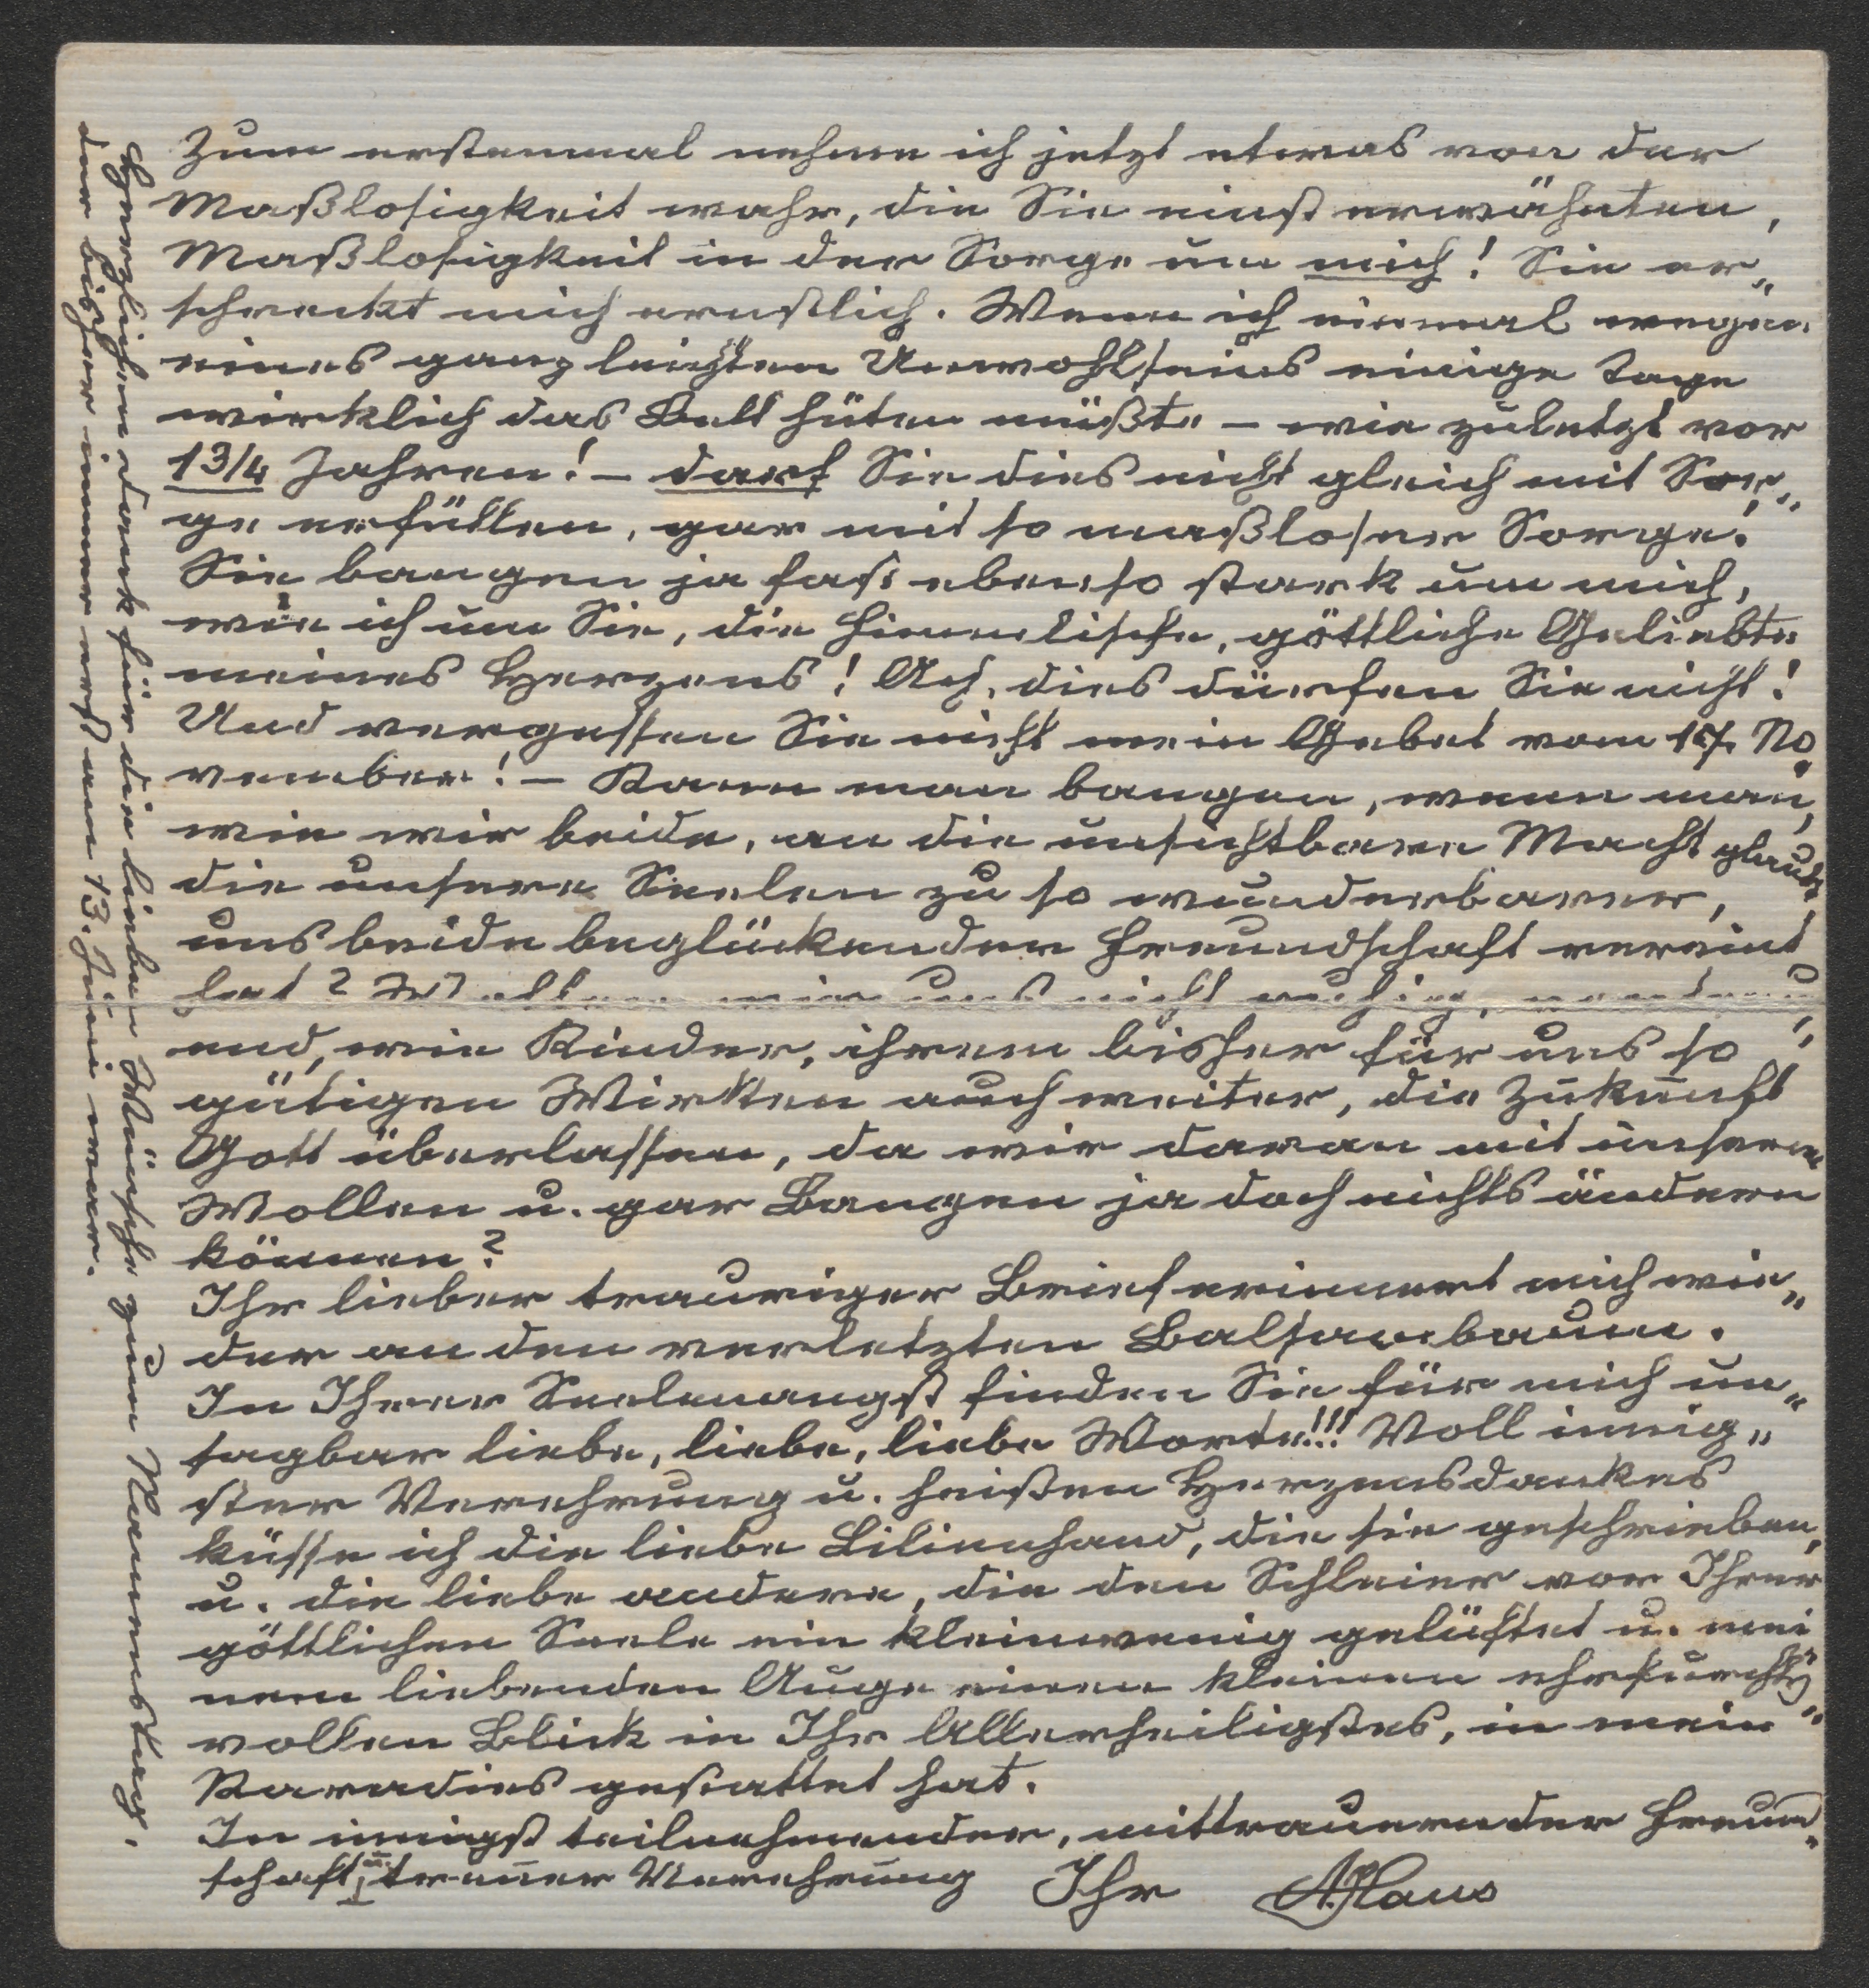 Zum erstenmal nehme ich jetzt etwas von der
Maßlosigkeit wahr, die Sie einst erwähnten,
Maßlosigkeit in der Sorge um mich! Sie er„
schreckt mich ernstlich. Wenn ich einmal wegen
eines ganz leichten Unwohlseins einige Tage
wirklich das Bett hüten müßte – wie zuletzt vor
1 3/4 Jahren! – darf Sie dies nicht gleich mit Sor„
ge erfüllen, gar mit so maßloser Sorge!
Sie bangen ja fast ebenso stark um mich,
wie ich um Sie, die himmlische, göttliche Geliebte
meines Herzens! Ach, dies dürfen Sie nicht!
Und vergessen Sie nicht mein Gebet vom 17. No
vember! – Kann man bangen, wenn man,
wie wir beide, an die unsichtbare Macht glaubt,
die unsere Seelen zu so wunderbarer,
uns beide beglückender Freundschaft vereint
hat? Wollen wir uns nicht ruhig,
end, wie Kinder, ihrem bisher für uns so
gütigen Wirken auch weiter, die Zukunft
Gott überlassen, da wir daran mit unserem
Wollen u. gar Bangen ja doch nichts ändern
können?
Ihr lieber trauriger Brief erinnert mich wie„
der an den verletzten Balsambaum.
In Ihrer Seelenangst finden Sie für mich un„
sagbar liebe, liebe, liebe Worte!!! Voll innig„
ster Verehrung u. heißen Herzensdankes
küsse ich die liebe Lilienhand, die sie geschrieben,
u. die liebe andere, die den Schleier vor Ihrer
göttlichen Seele ein kleinwenig gelüftet u. mei
nem liebenden Auge einen kleinen ehrfurchts„
vollen Blick in Ihr Allerheiligstes, in mein
Paradies gestattet hat.
In innigst teilnehmender, mittrauernder Freund„
schaft u. treuer Verehrung Ihr AKlaus
Herzlichen Dank für die lieben Wünsche zum Namenstag,
der bisher immer erst am 13. Juni war.